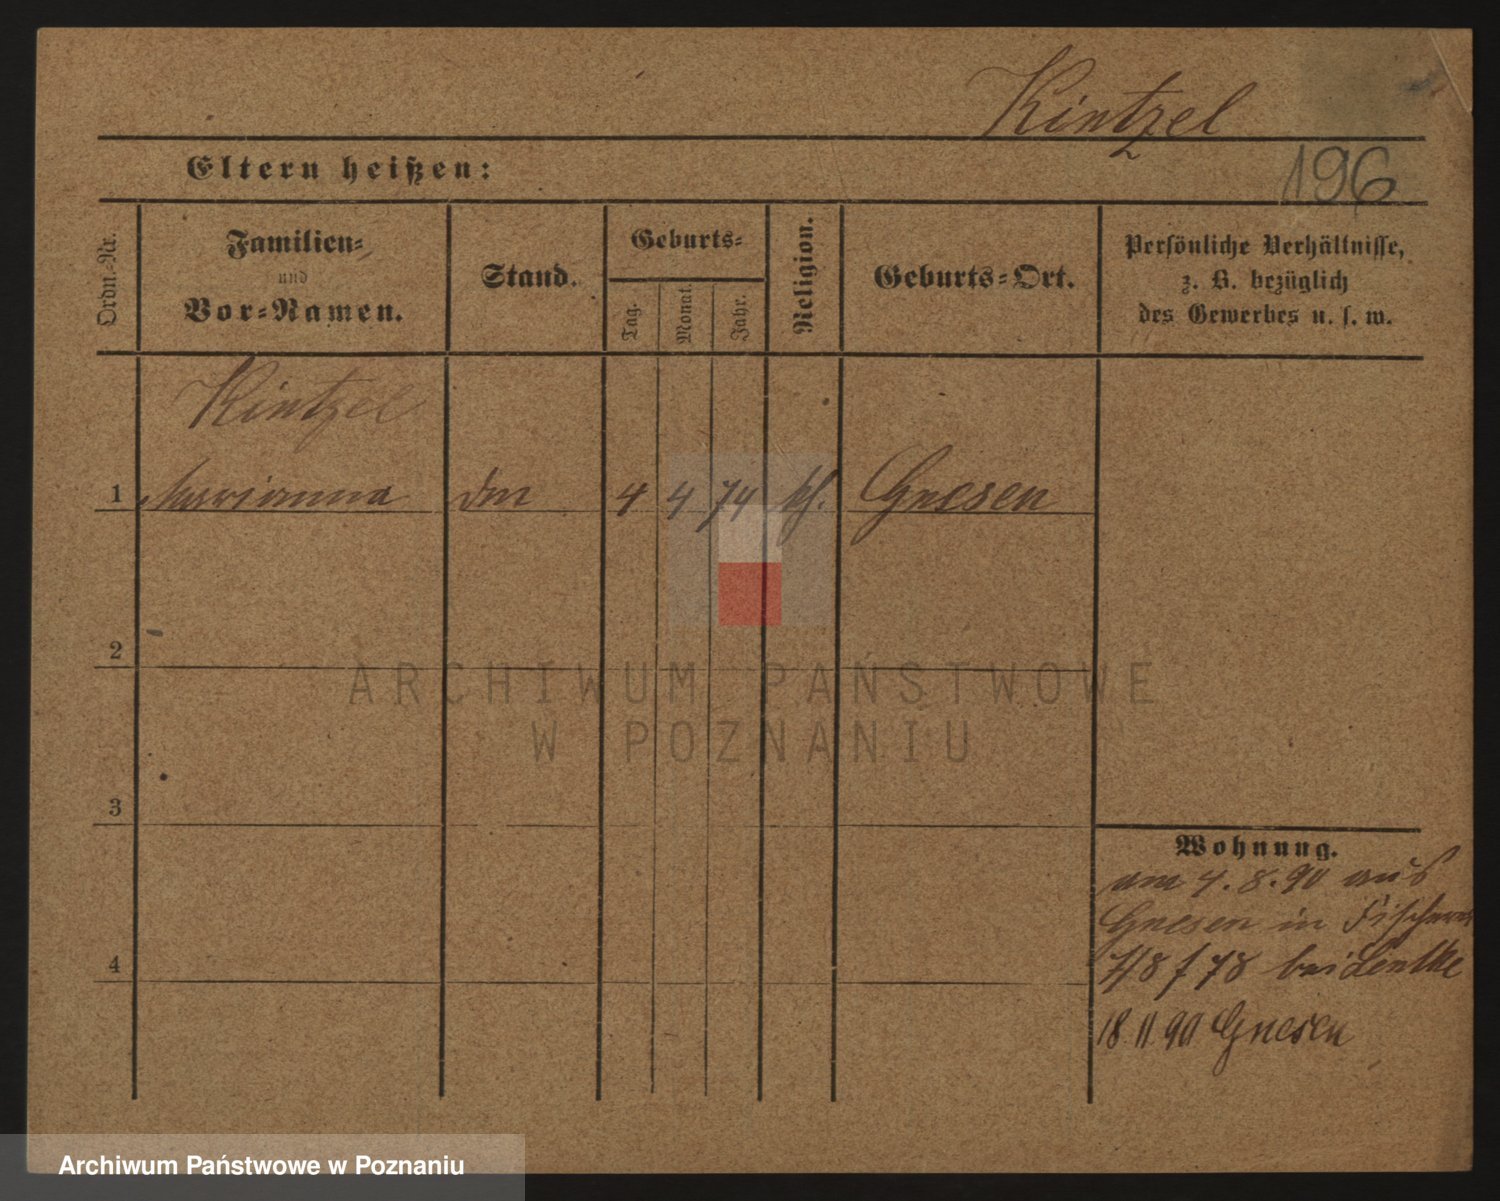 Kintzel
Eltern heißen:
196
Ordn.-Nr.
Familien-
und
Vor-Namen.
Stand.
Geburts-
Tag.
Monat.
Jahr.
Religion.
Geburts-Ort.
Persönliche Verhältnisse,
z. B. bezüglich
des Gewerbes u. s. w.
Kintzel
1 Marianna 4 4 74 kth. Gnesen
2
3
4
Wohnung.
am 4.8.90 aus
Gnesen in
7/8 78 bei
18 11 90 Gnesen
ARCHIWUM PAŃSTWOWE
W POZNANIU
Archiwum Państwowe w Poznaniu